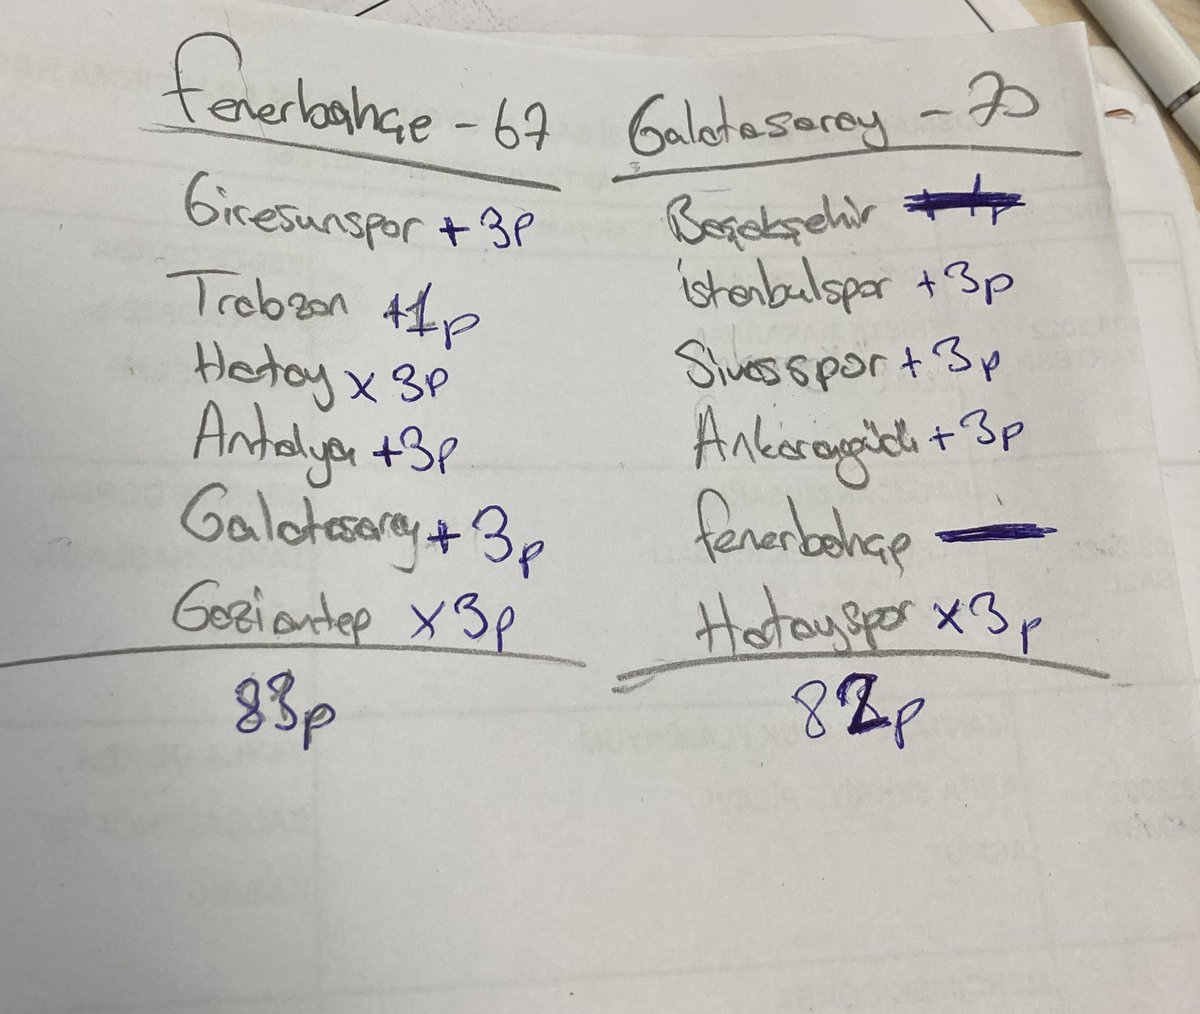 Fenerbahçe - 67
Giresunspor + 3p
Trabzon +1p
Hatay x 3p
Antalya +3p
Galatasaray + 3p
Gaziantep x3p
83p
Galatasaray - 70
Başakşehir
istanbulspor +3p
Sivasspor + 3p
Ankaragücü + 3p
fenerbahçe
Hatayspor x3p
82p